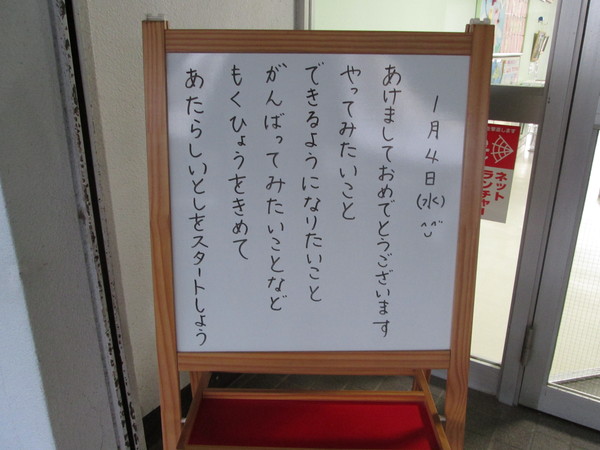 1月4日(水)
あけましておめでとうございます
やってみたいこと
できるようになりたいこと
がんばってみたいことなど
もくひょうをきめて
あたらしいとしをスタートしよう
ネット
ランチャー